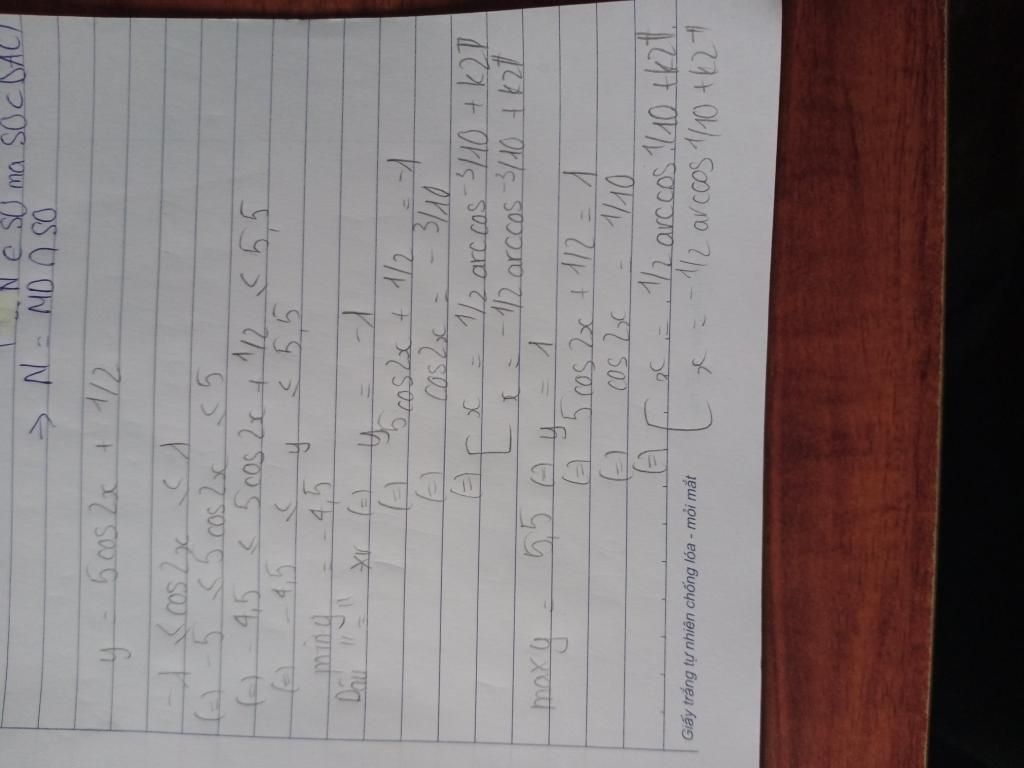 N ∈ SO mà SO ⊂ (SAC)
→ N = MD ∩ SO
y = 5cos2x + 1/2
-1 ≤ cos2x ≤ 1
(=) -5 ≤ 5cos2x ≤ 5
(=) -4,5 ≤ 5cos2x + 1/2 ≤ 5,5
(=) -4,5 ≤ y ≤ 5,5
miny = -4,5
Dấu "=" xr (=) y = -1
(=) 5cos2x + 1/2 = -1
(=) cos2x = -3/10
(=) [ x = 1/2 arccos -3/10 + k2π
x = -1/2 arccos -3/10 + k2π
maxy = 5,5 (=) y = 1
(=) 5cos2x + 1/2 = 1
(=) cos2x = 1/10
(=) [ x = 1/2 arccos 1/10 + k2π
x = -1/2 arccos 1/10 + k2π
Giấy trắng tự nhiên chống lóa - mỏi mắt